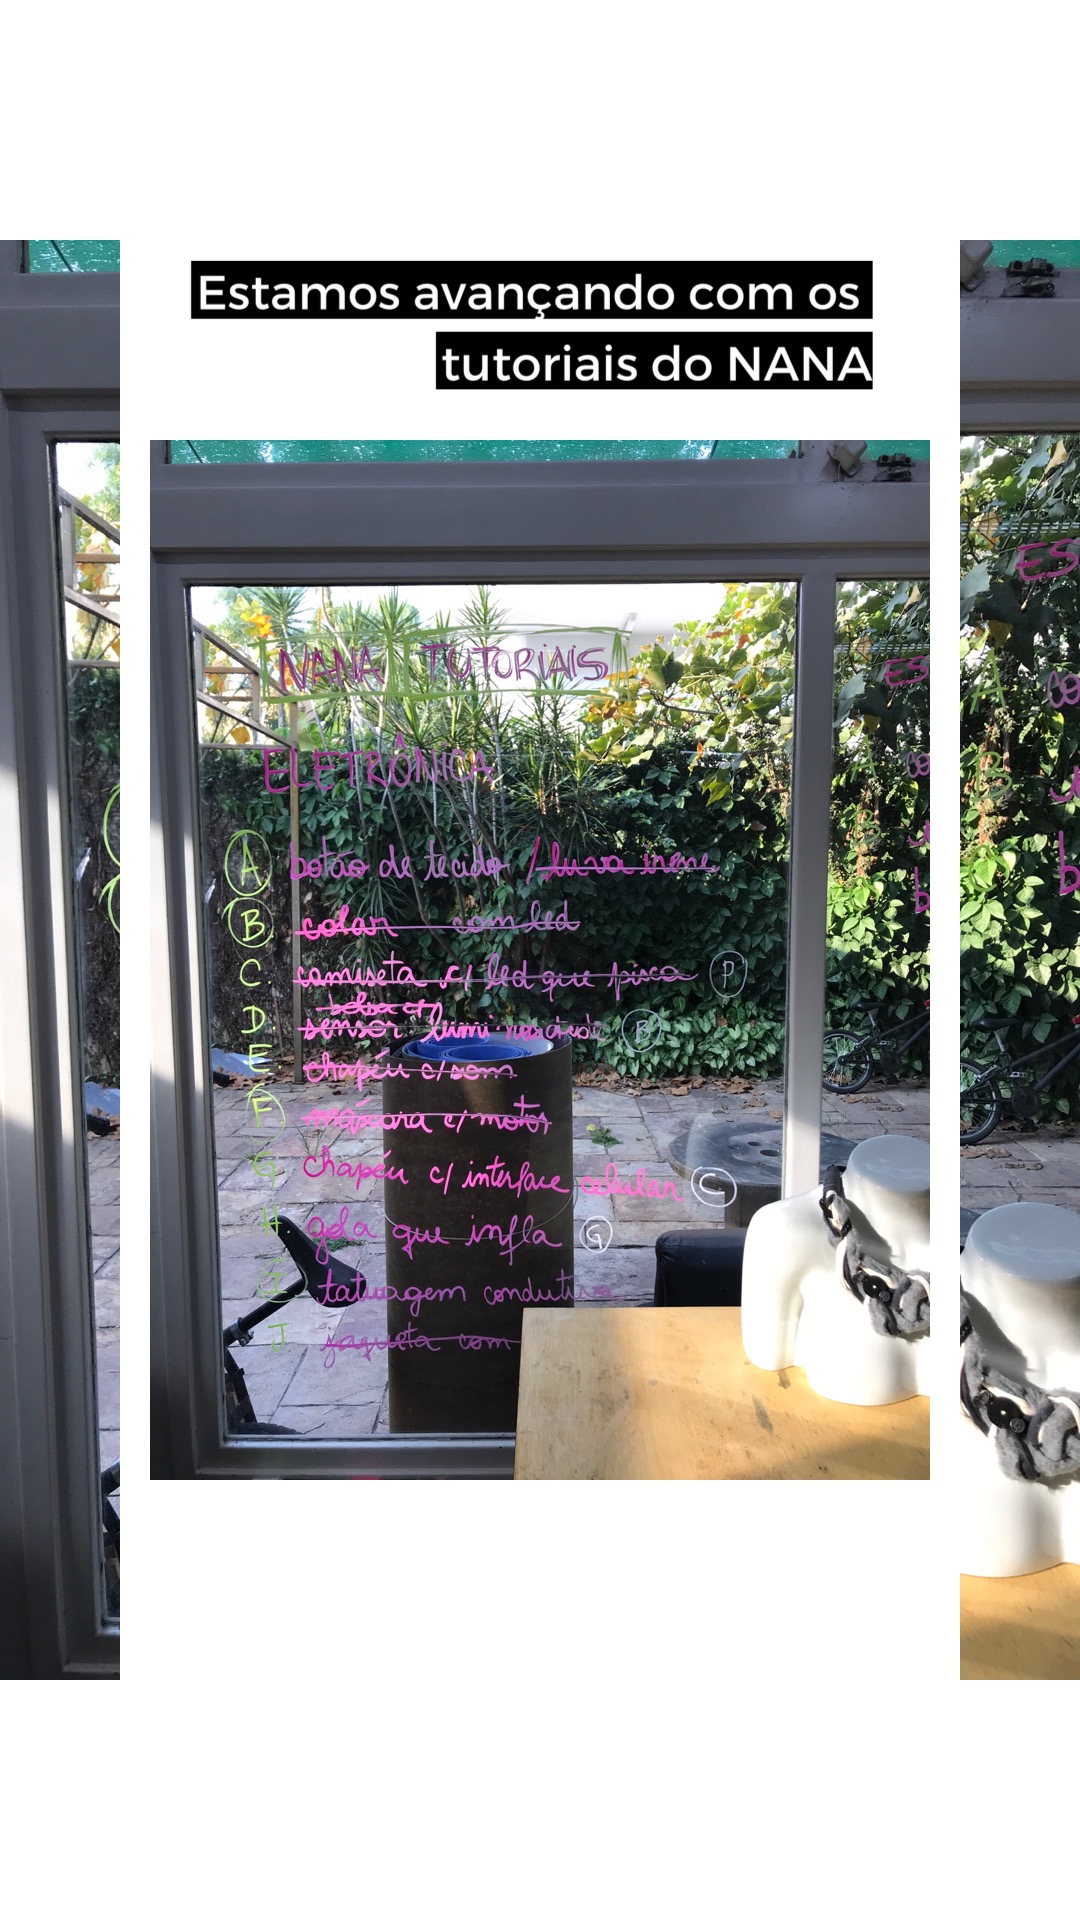 Estamos avançando com os
tutoriais do NANA
NANA TUTORIAIS
ELETRÔNICA
A botão de tecido /luva
B colar com led
C camiseta c/ led que pisca P
bolsa c/
D sensor lumi B
E chapéu c/som
F máscara c/ motor
G chapéu c/ interface celular C
H gola que infla G
I tatuagem condutiva
J jaqueta com
ES
A CO
B
b